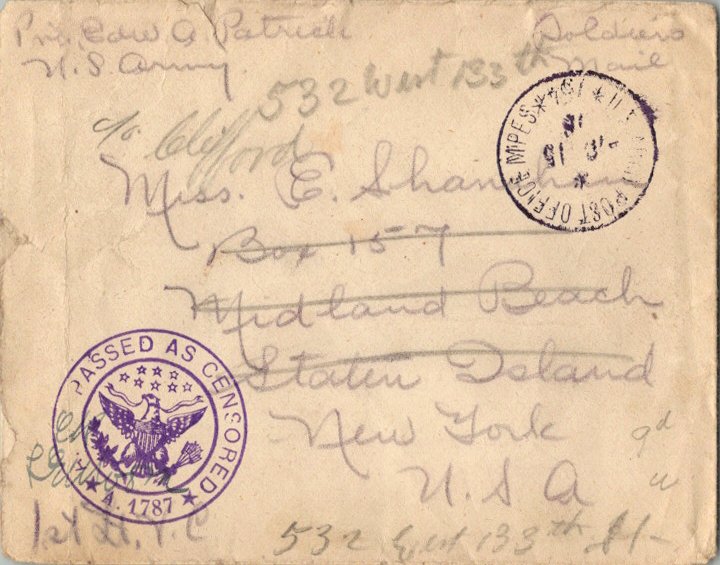 Pvt. Edw A. Patrick
U.S. Army
Soldiers
Mail
532 West 133th
c/o Clifford
U.S. ARMY POST OFFICE M.P.E.S. * 761 *
Miss. E. Shanahan
Box 157
Midland Beach
Staten Island
New York
U.S.A
PASSED AS CENSORED
A. 1787
1st Lt.
532 West 133th St-